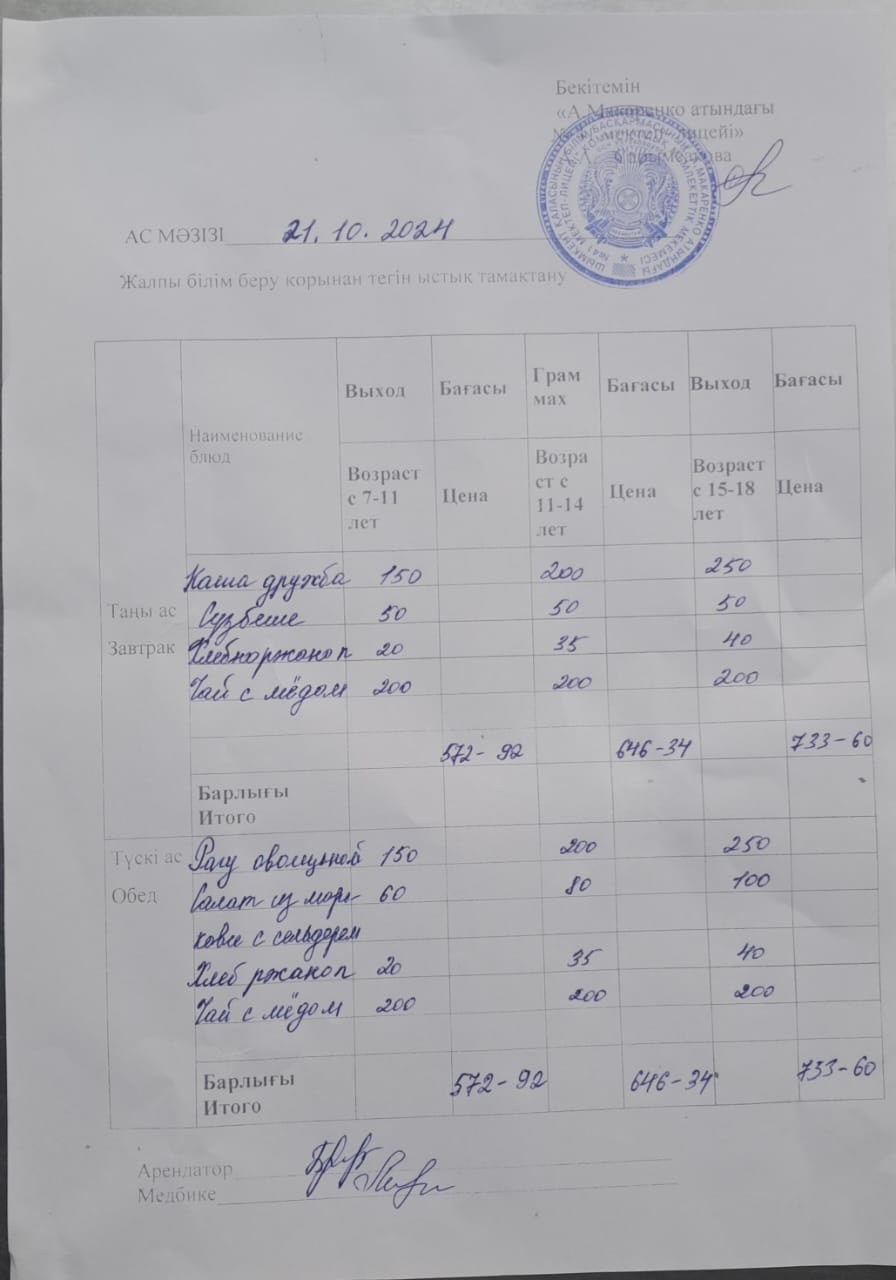 Бекітемін
«А.Макаренко атындағы
мектеп-лицейі»
АС МӘЗІЗІ 21.10.2024
Жалпы білім беру қорынан тегін ыстық тамақтану
Наименование блюд Выход Бағасы Грам мах Бағасы Выход Бағасы
Возраст с 7-11 лет Цена Возра ст с 11-14 лет Цена Возраст с 15-18 лет Цена
Каша дружба 150 200 250
Таңы ас Сузбеше 50 50 50
Завтрак Хлебноржаноп 20 35 40
Чай с мёдом 200 200 200
572-92 646-34 733-60
Барлығы
Итого
Түскі ас Рагу овощьной 150 200 250
Обед Салат из мор- 60 80 100
кове с сельдерем
Хлеб ржаноп 20 35 40
Чай с мёдом 200 200 200
Барлығы
Итого 572-92 646-34 733-60
Арендатор
Медбике